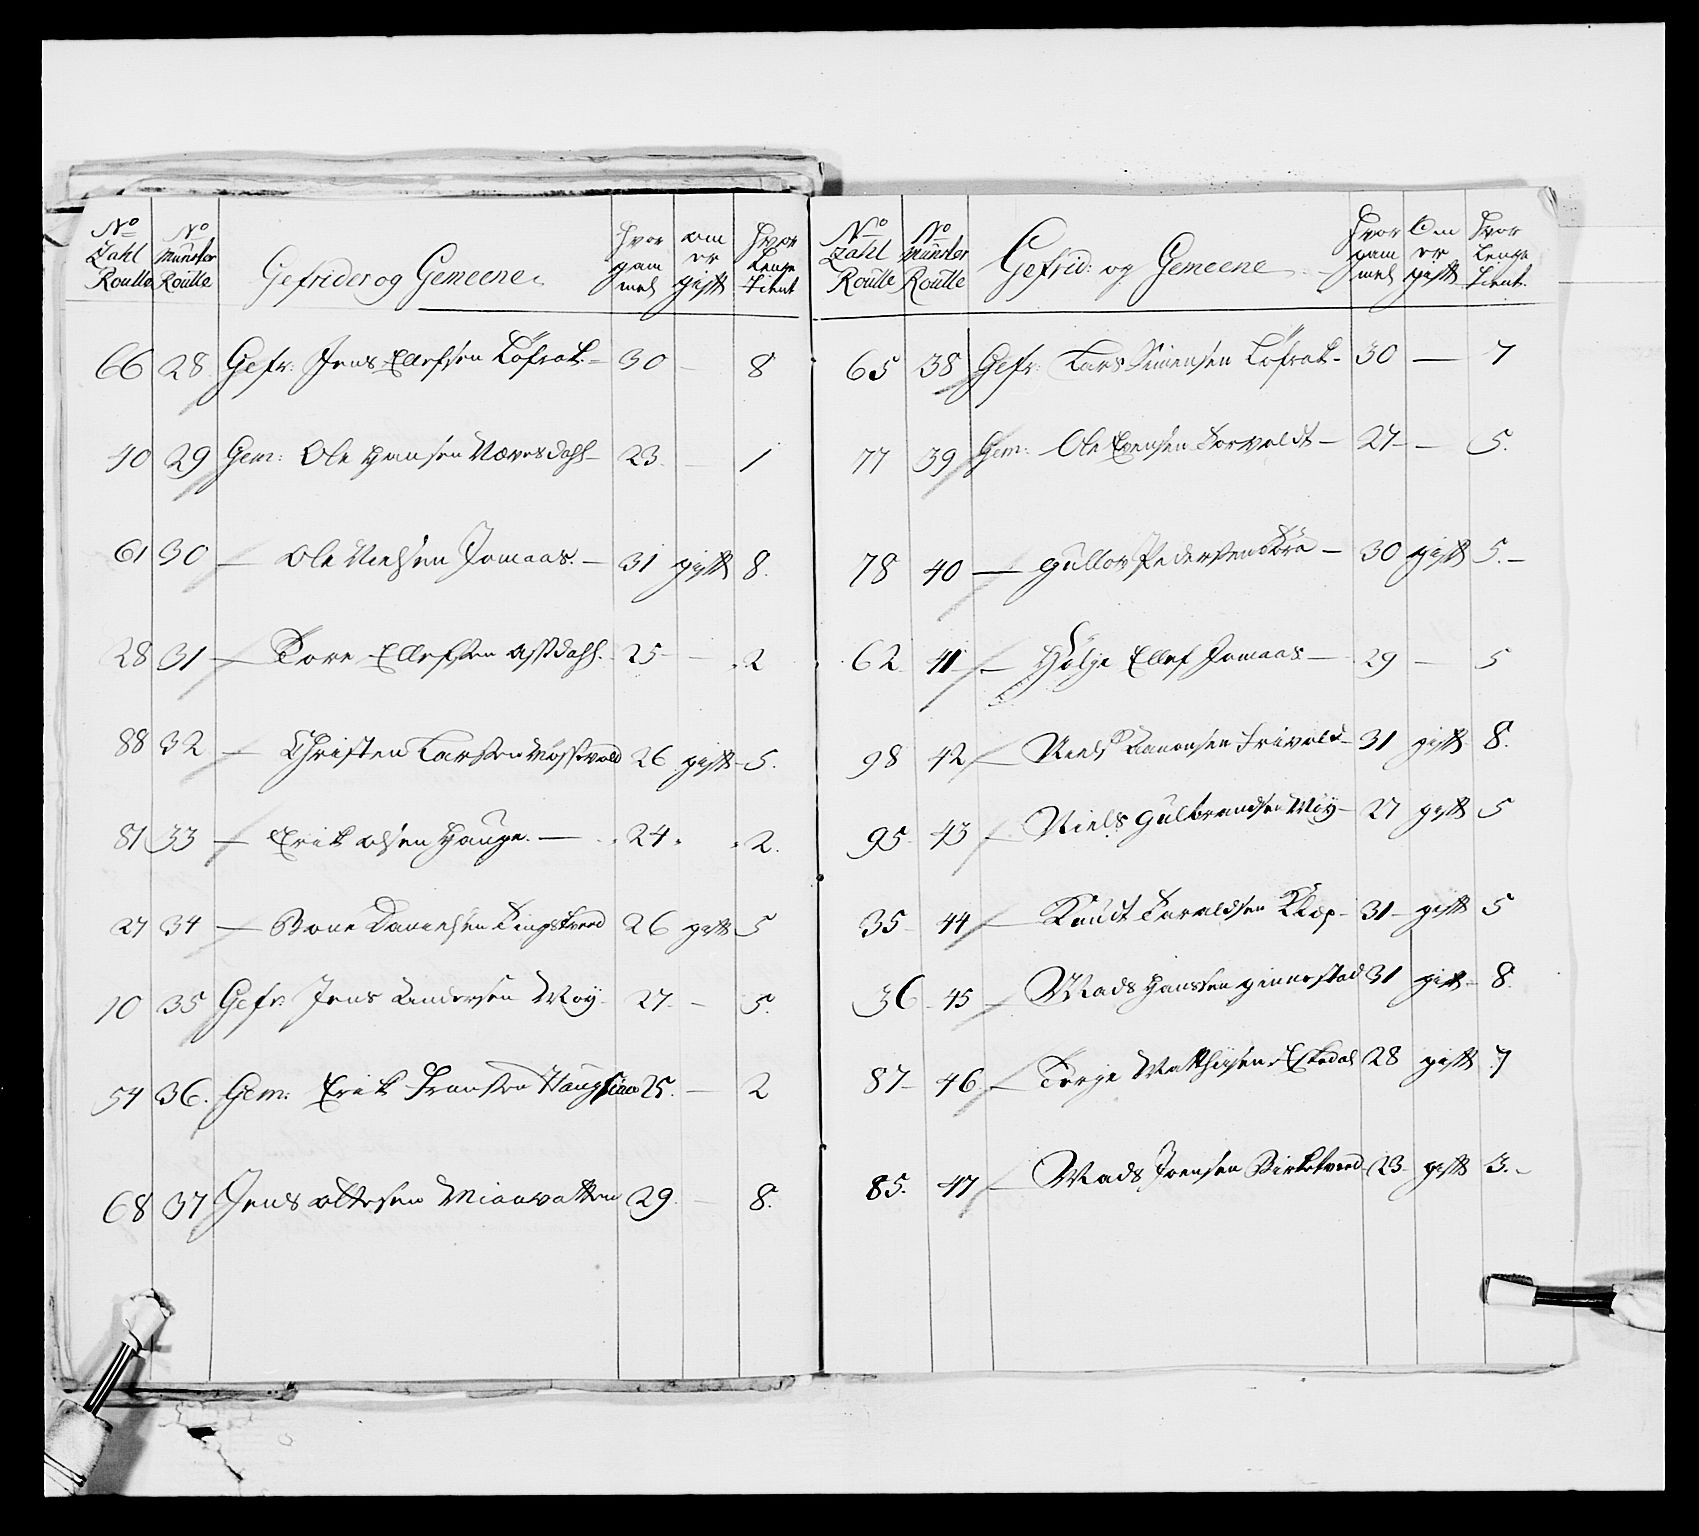 No Zahl Roulle | No Munster Roulle | Gefrider og Gemeene. | Hvor gam mel | om er gift | Hvor Lenge tient
66 28 Gefr: Jens Ellefsen Löfrak - 30 - 8
40 29 Gem: Ole Hansen Nævesdahl - 23. - 1
61 30 — Ole Nielsen Jomaas. - 31 gift 8.
28 31 — Tore Ellefsen Assdahl. 25 - 2
88 32 — Christen Larsen 26 gift - 5.
81 33 — Erik olsen Hauge. — 24. 2.
27 34 — Bone Danielsen Tingstved 26 gift 5
10 35 Gefr: Jens Andersen Moy. 27. - 5.
54 36. Gem: Erik Fransen 25. - 2
68 37 Jens ottesen 29. - 8.
No Zahl Roulle | No Munster Roulle | Gefrid: og Gemeene | Hvor gam mel | Om er gift | Hvor Lenge tient.
65 38 Gefr: Lars Simensen Löfrak - 30 — 7
77 39 Gem: Ole Evensen Torvoldt — 27 - — 5.
78 40 — Gullov Pedersen — 30 gift 5. —
62 41 — Hölje Ellef Jomaas — 29 — 5
98 42 — Niels Aanonsen Trivold - 31 gift 8.
95 43 — Niels Gulbrandsen Moy - 27 gift 5
35 44 — Knudt Taraldsen Klep - 31 - gift 5
36 45 — Mads Hansen ginnestad 31 gift - 8.
87 - 46 — Terje Matthisen Eskedal 28 gift 7
85. 47 — Mads Joensen Birketved - 23 - gift 3. -